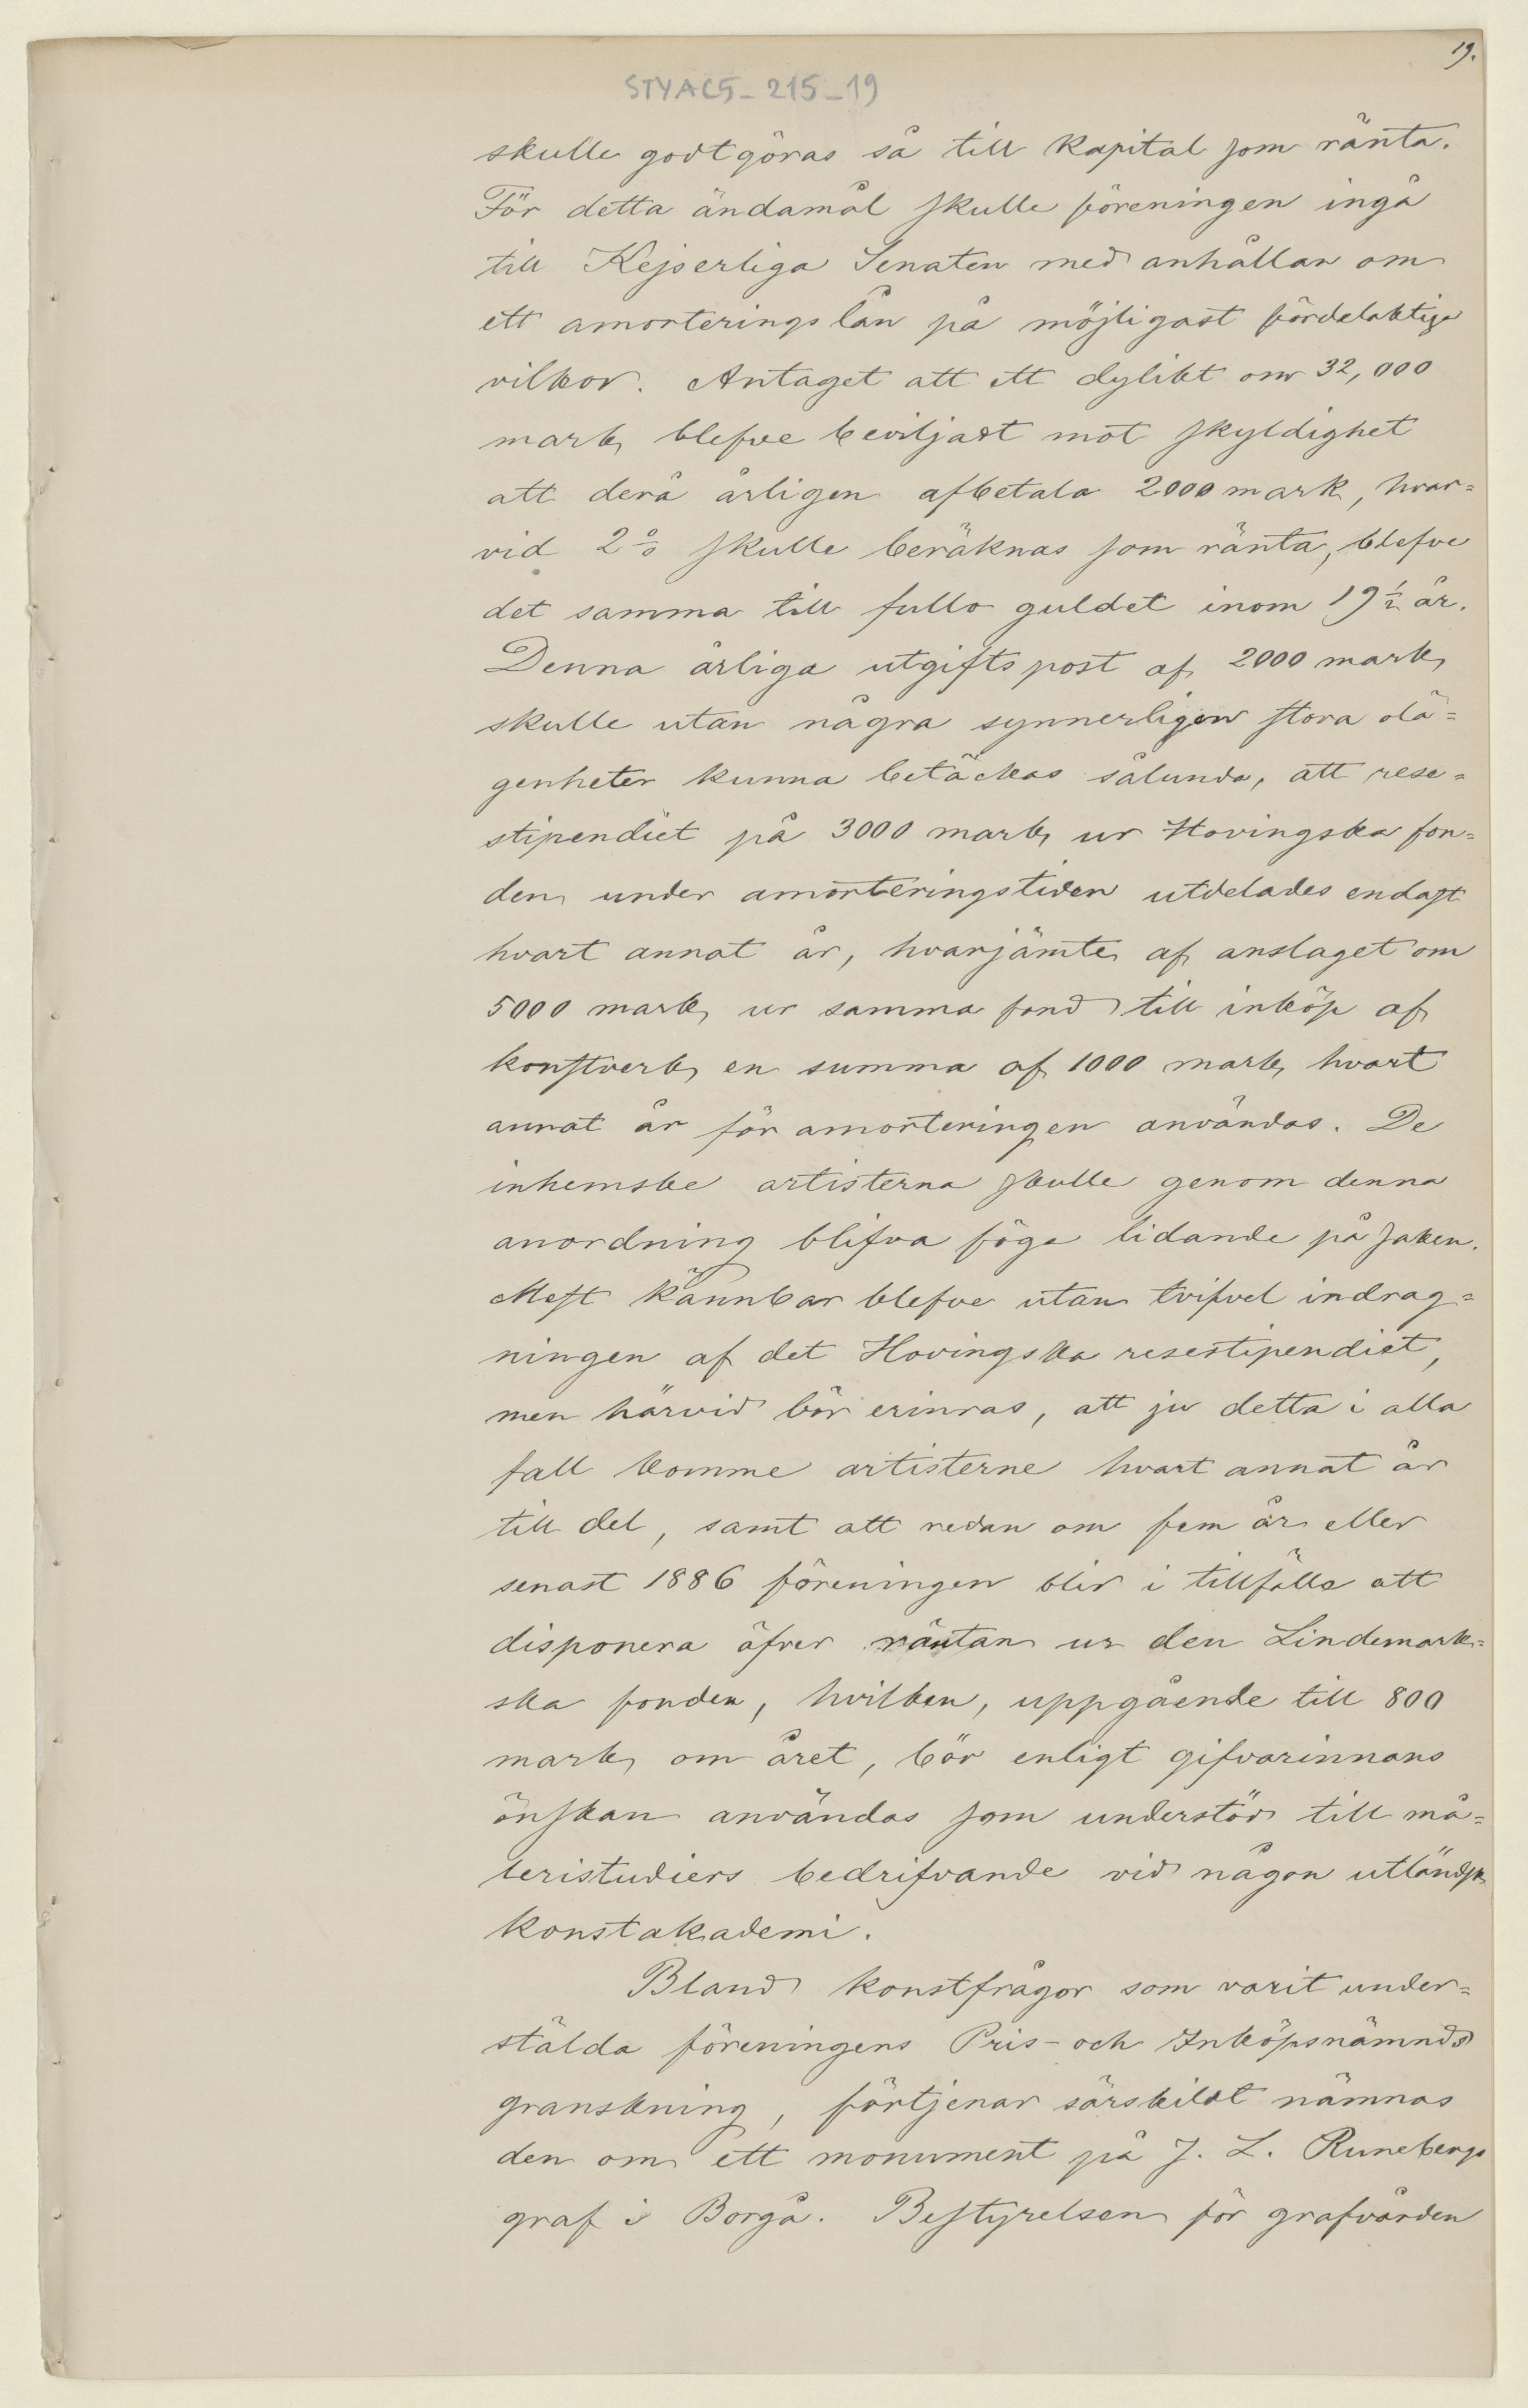 19.
STYAC5_215_19
skulle godtgöras så till kapital som ränta.
För detta ändamål skulle föreningen ingå
till Kejserliga Senaten med anhållan om
ett amorteringslån på möjligast fördelaktiga
vilkor. Antaget att ett dylikt om 32,000
mark blefve beviljadt mot skyldighet
att derå årligen afbetala 2000 mark, hvar=
vid 2% skulle beräknas som ränta, blefve
det samma till fullo guldet inom 19 1/2 år.
Denna årliga utgiftspost af 2000 mark
skulle utan några synnerligen stora olä=
genheter kunna betäckas sålunda, att rese=
stipendiet på 3000 mark ur Hovingska fon=
den under amorteringstiden utdelades endast
hvart annat år, hvarjämte af anslaget om
5000 mark ur samma fond till inköp af
konstverk en summa af 1000 mark hvart
annat år för amorteringen användas. De
inhemske artisterna skulle genom denna
anordning blifva föga lidande på saken.
Mest kännbar blefve utan tvifvel indrag=
ningen af det Hovingska resestipendiet,
men härvid bör erinras, att ju detta i alla
fall komme artisterne hvart annat år
till del, samt att redan om fem år eller
senast 1886 föreningen blir i tillfälle att
disponera öfver räntan ur den Lindemark=
ska fonden, hvilken, uppgående till 800
mark om året, bör enligt gifvarinnans
önskan användas som understöd till må=
leristudiers bedrifvande vid någon utländsk
konstakademi.
Bland konstfrågor som varit under=
stälda föreningens Pris- och Inköpsnämnds
granskning, förtjenar särskildt nämnas
den om ett monument på J. L. Runebergs
graf i Borgå. Bestyrelsen för grafvården